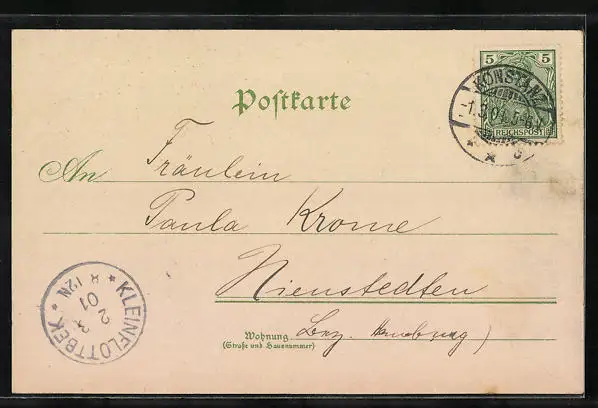 5 5
KONSTANZ
-1.3.01.5-6N.
REICHSPOST
Postkarte
An Fräulein
Paula Krome
Nienstedten
Wohnung Bez. Hamburg)
(Straße und Hausnummer)
KLEINFLOTTBEK
2 3
01
8-12N